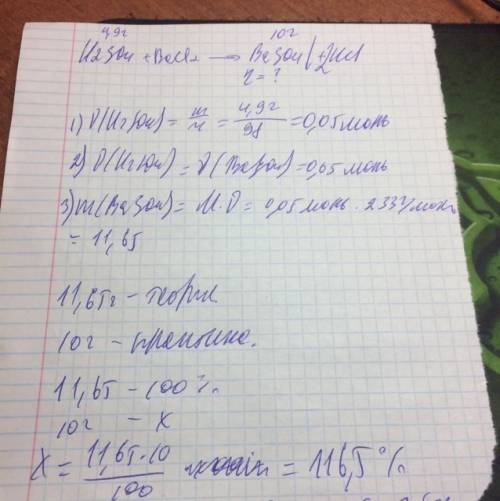 4,9г 10г
H2SO4 + BaCl2 → BaSO4↓ + 2HCl
η = ?
1) ν(H2SO4) = m/M = 4,9г/98 = 0,05 моль
2) ν(H2SO4) = ν(BaSO4) = 0,05 моль
3) m(BaSO4) = M·ν = 0,05 моль · 233г/моль
= 11,65
11,65г – теория
10г – практика.
11,65 – 100%
10г – x
X = 11,65·10/100 = 116,5%